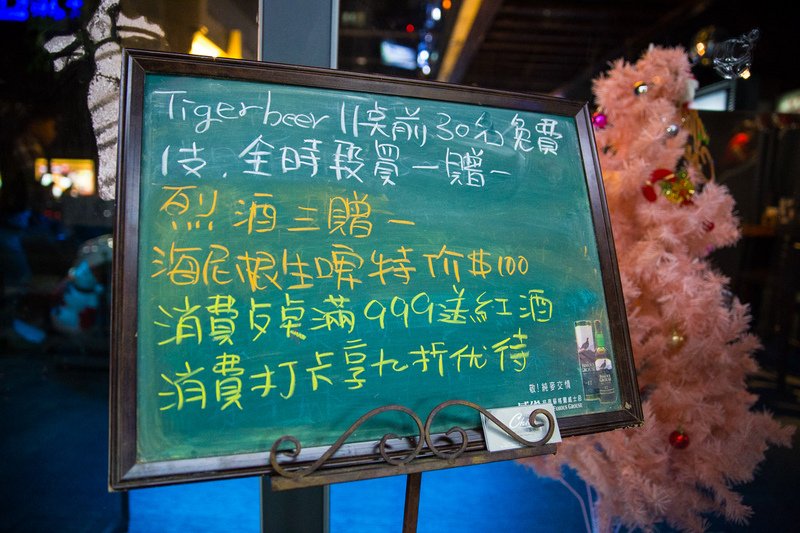 Tigerbeer 11奌前30名免費
1支.全時段買一贈一
烈酒三贈一
海尼根生啤特价$100
消費桌滿999送紅酒
消費打卡享九折优待
敬!純麥交情
FAMOUS GROUSE